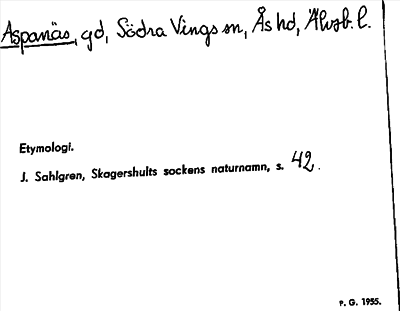 Aspanäs, gd, Södra Vings sn, Ås hd, Älvsb. l.
Etymologi.
J. Sahlgren, Skagershults sockens naturnamn, s. 42.
P. G. 1955.